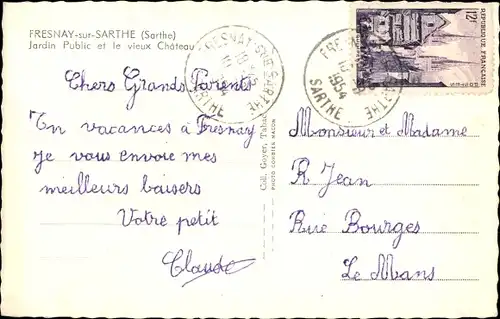 FRESNAY-sur-SARTHE (Sarthe)
Jardin Public et le vieux Château
Chers Grands Parents
En vacances à Fresnay
je vous envoie mes
meilleurs baisers
Votre petit
Claude
Coll. Goyer, Tabac
PHOTO COMBIER MACON
FRESNAY-SUR-SARTHE
SARTHE
1954
SARTHE
12F
REPUBLIQUE FRANÇAISE
Monsieur et Madame
R Jean
Rue Bourges
Le Mans